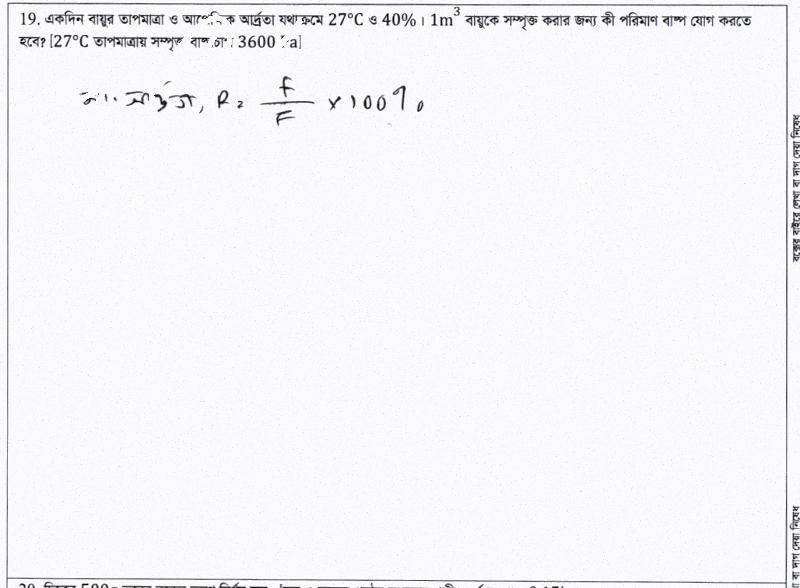 19. একদিন বায়ুর তাপমাত্রা ও আপেক্ষিক আর্দ্রতা যথাক্রমে 27°C ও 40%। 1m³ বায়ুকে সম্পৃক্ত করার জন্য কী পরিমাণ বাষ্প যোগ করতে
হবে? [27°C তাপমাত্রায় সম্পৃক্ত বাষ্প চাপ: 3600 Pa]
আর্দ্রতা, R = f/F × 100%
বক্সের বাইরে লেখা বা দাগ দেয়া নিষেধ
বা দাগ দেয়া নিষেধ